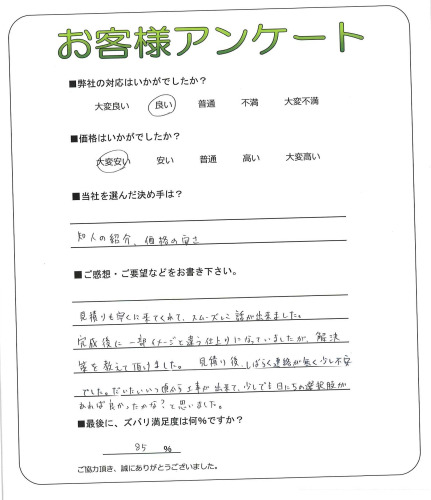 お客様アンケート
■弊社の対応はいかがでしたか？
大変良い 良い 普通 不満 大変不満
■価格はいかがでしたか？
大変安い 安い 普通 高い 大変高い
■当社を選んだ決め手は？
知人の紹介、価格の安さ
■ご感想・ご要望などをお書き下さい。
見積りも早くに来てくれて、スムーズに話が出来ました。
完成後に一部イメージと違う仕上りになっていましたが、解決
策を教えて頂けました。見積り後、しばらく連絡が無く少し不安
でした。だいたいいつ頃から工事が出来て、少しでも日にちの選択肢が
あれば良かったかな？と思いました。
■最後に、ズバリ満足度は何％ですか？
85 ％
ご協力頂き、誠にありがとうございました。